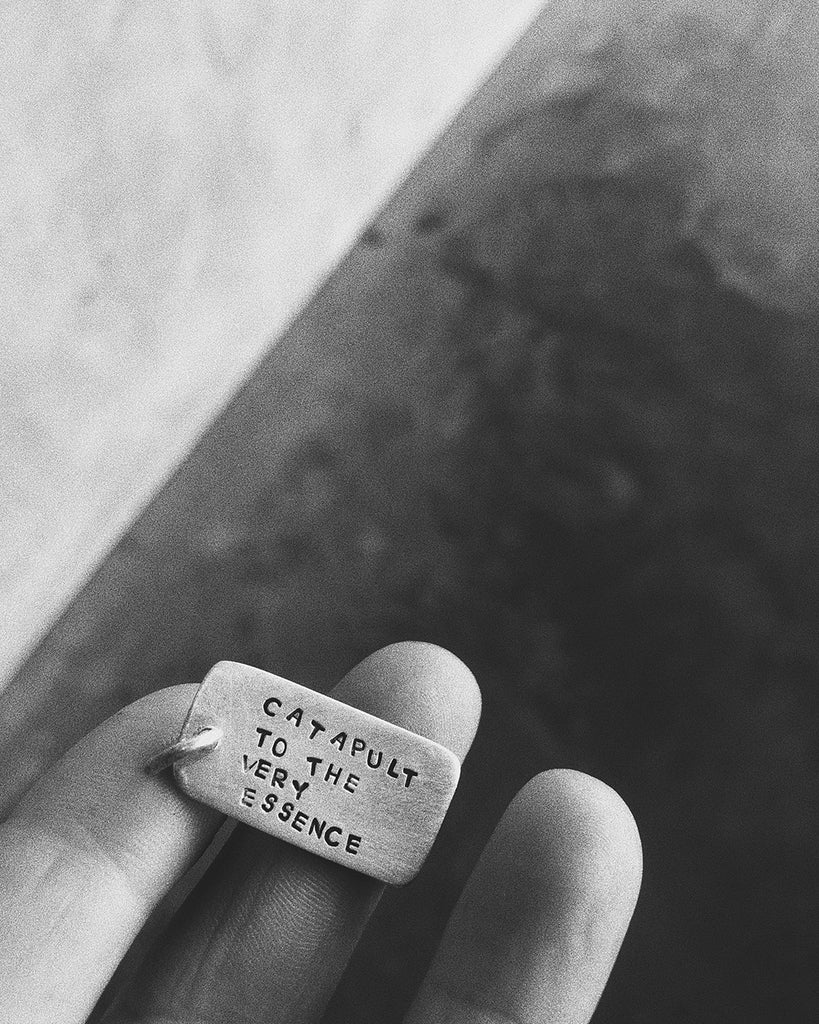 CATAPULT
TO THE
VERY
ESSENCE